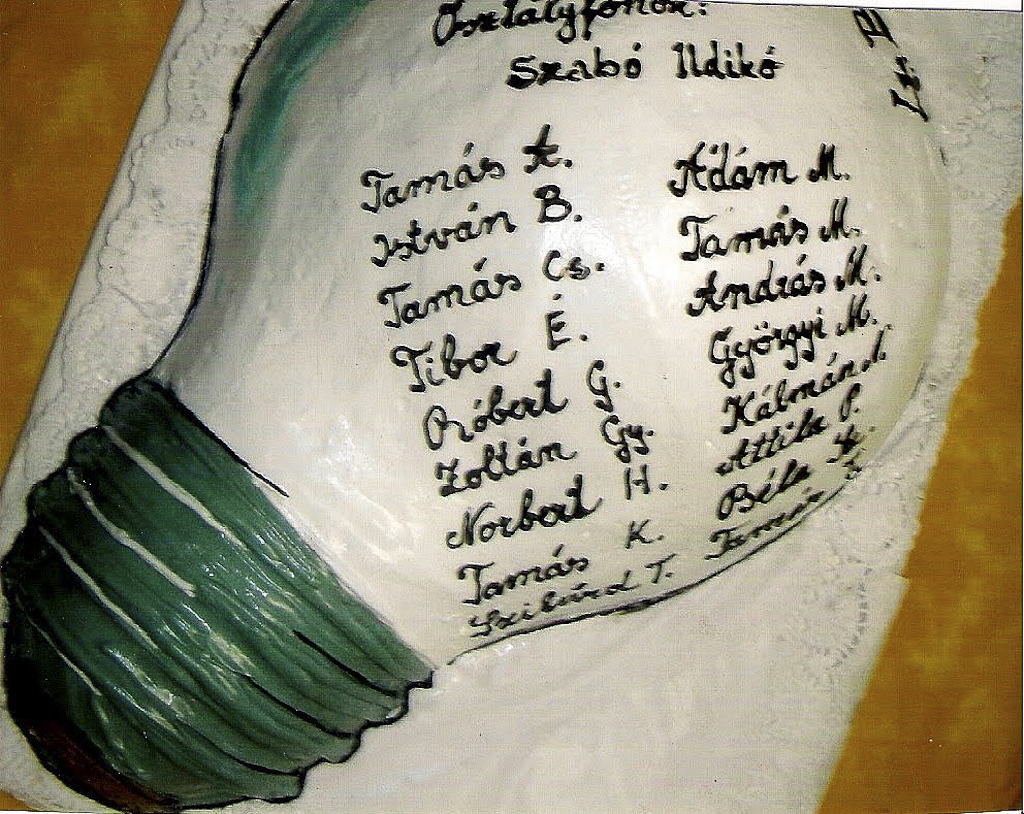 Osztályfőnök:
Szabó Ildikó
Tamás A.
István B.
Tamás Cs.
Tibor É.
Róbert G.
Zoltán Gy.
Norbert H.
Tamás K.
Szilárd T.
Ádám M.
Tamás M.
András M.
Györgyi M.
Kálmán
Attila P.
Béla
Tamás